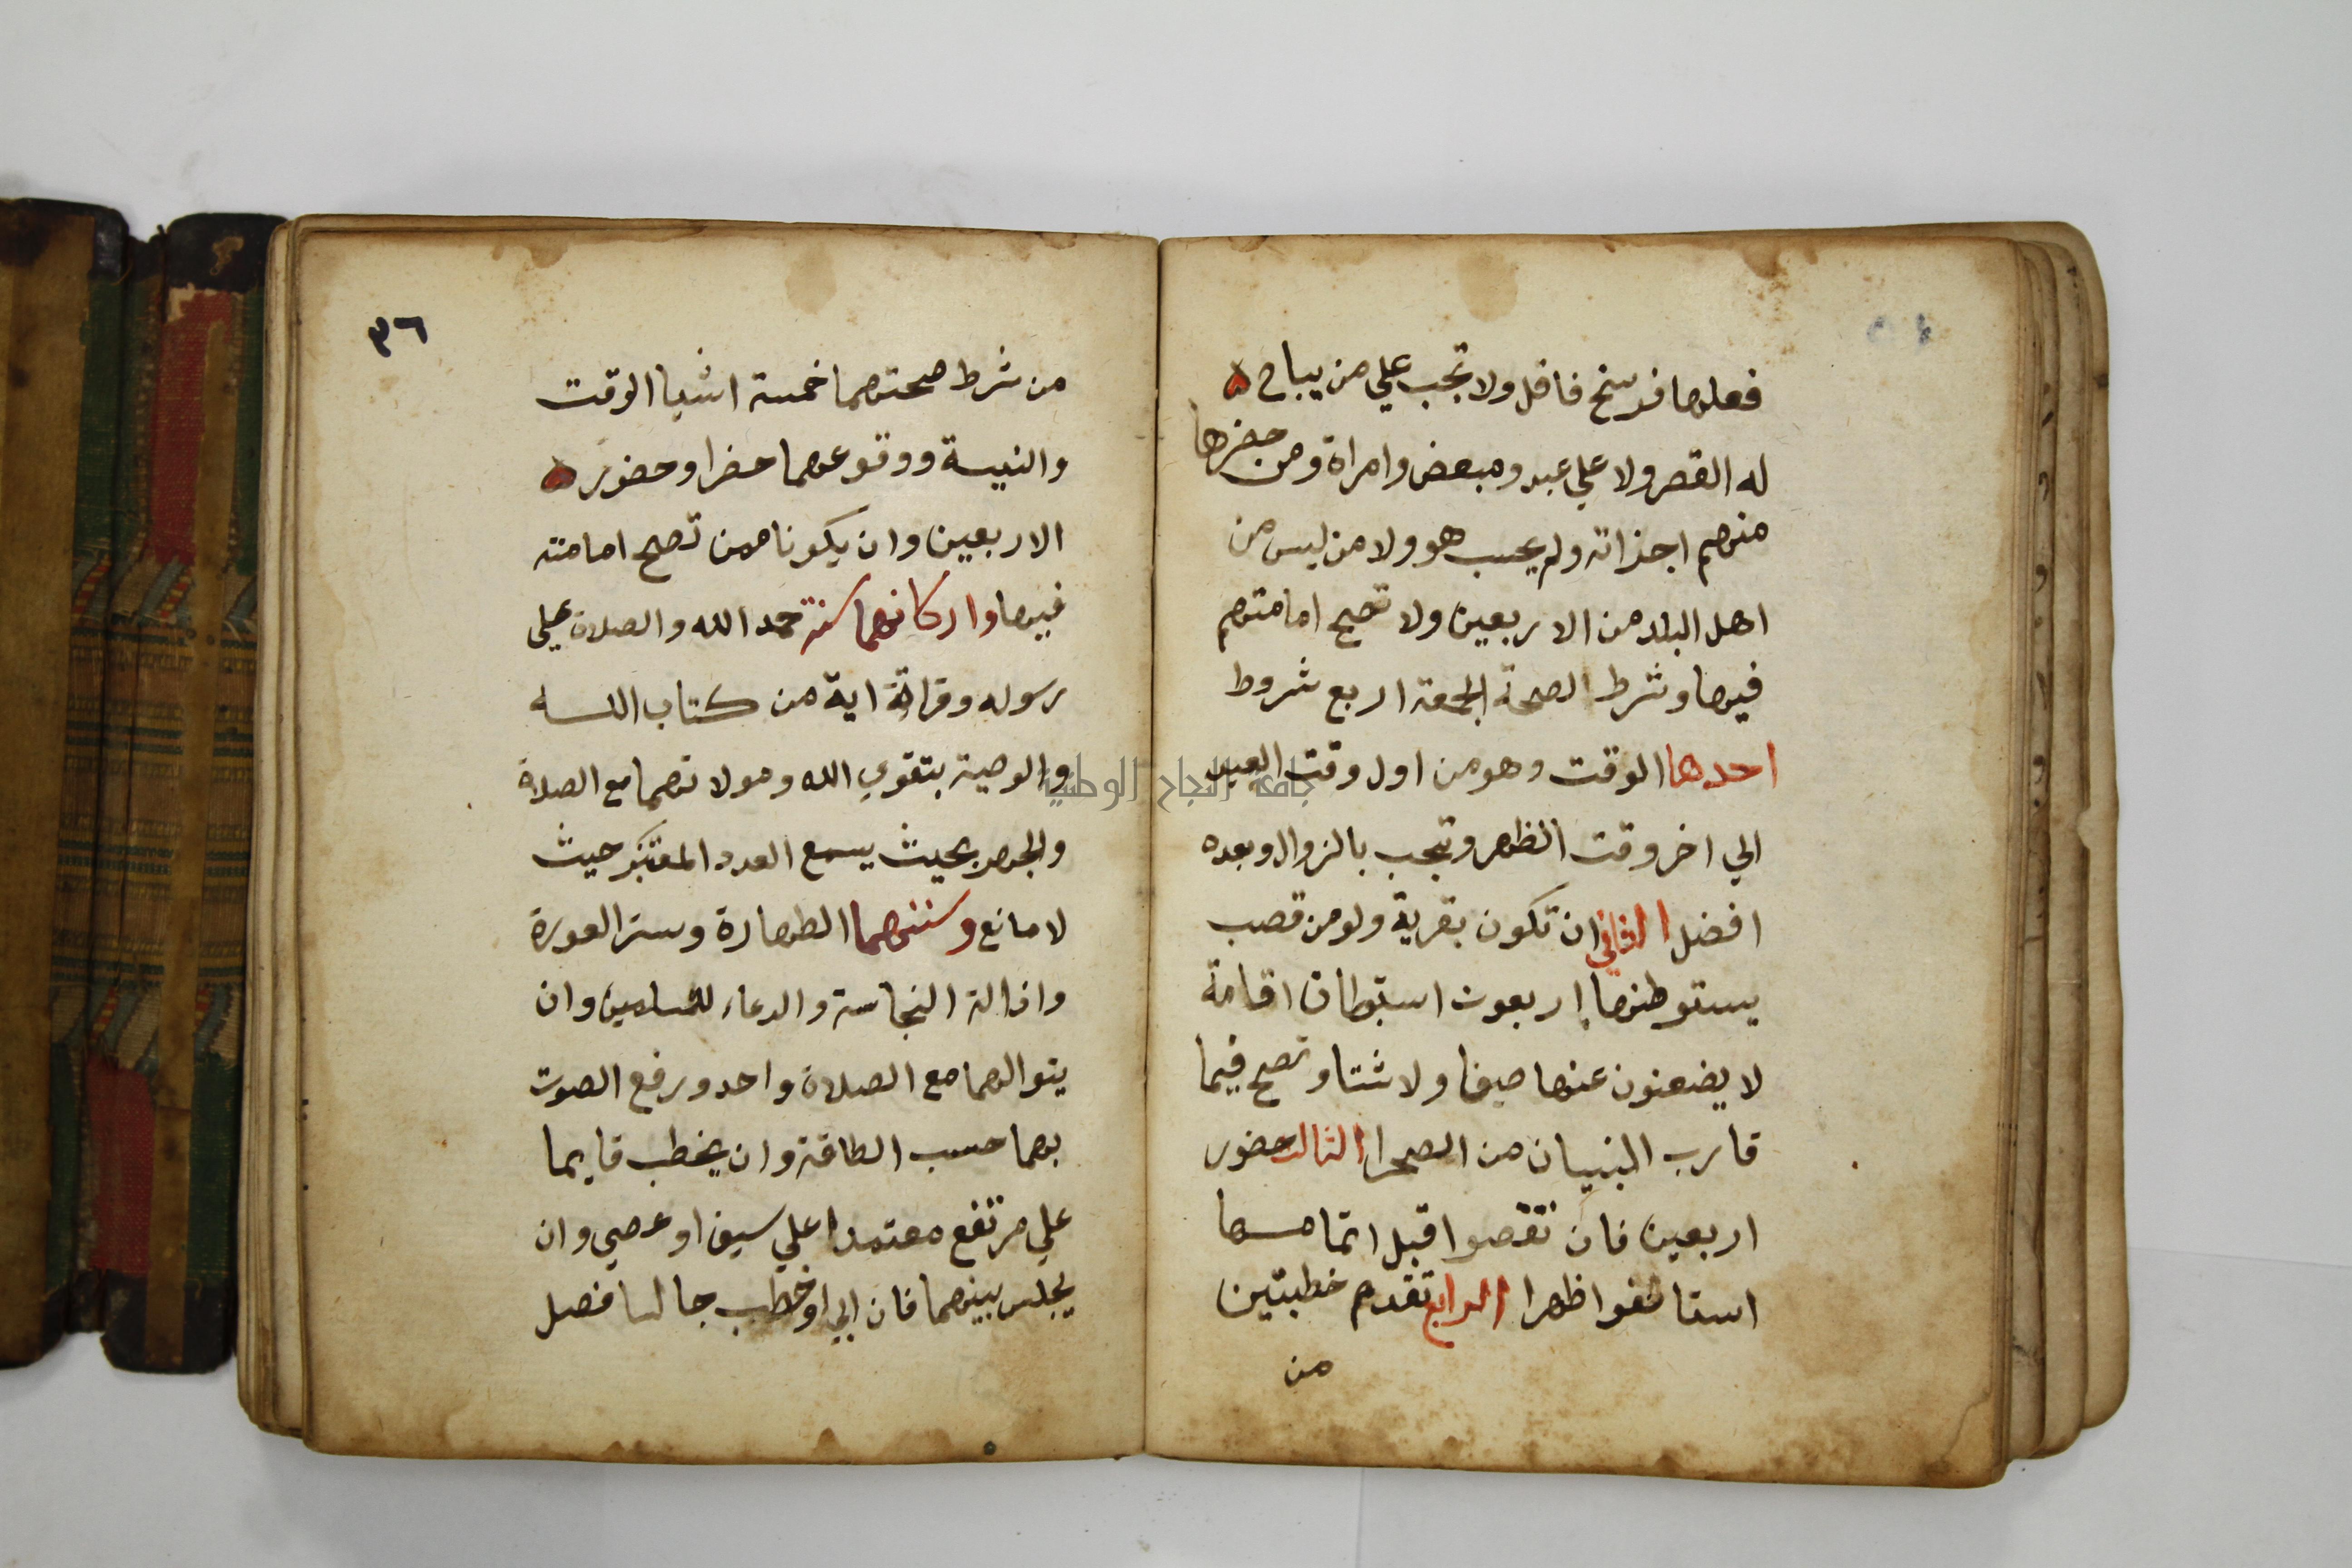 فعلوها فرسخ فاقل ولا تجب علي من يباح
له القصر ولا علي عبد ومبعض وامراة ومن حضرها
منهم اجذاته ولم يحسب هو ولا من ليس من
اهل البلد من الاربعين ولا تصح امامتهم
فيها وشرط الصحة الجمعة اربع شروط
احدها الوقت وهو من اول وقت العيد
الي اخر وقت الظهر وتجب بالزوال وبعده
افضل الثاني ان تكون بقرية ولو من قصب
يستوطنها اربعون استبطان اقامة
لا يضعنون عنها صيفا ولا شتا وتصح فيما
قارب البنيان من الصحرا الثالث حضور
اربعين فان نقصوا قبل اتمامها
استانفوا ظهرا الرابع تقدم خطبتين
من
٣٦
من شرط صحتهما خمسة اشيا الوقت
والنية ووقوعهما حضرا وحضور
الاربعين وان يكونا ممن تصح امامته
فيها واركانهما ستة حمد الله والصلاة علي
رسوله وقراة اية من كتاب الله
والوصية بتقوي الله وموالاتهما مع الصلاة
والجهر بحيث يسمع العدد المعتبر حيث
لا مانع وسننهما الطهارة وستر العورة
وازالة النجاسة والدعاء للمسلمين وان
يتوالهما مع الصلاة واحد ورفع الصوت
بهما حسب الطاقة وان يخطب قايما
علي مرتفع معتمدا علي سيف او عصي وان
يجلس بينهما فان ابي او خطب جالسا فصل
جامعة النجاح الوطنية